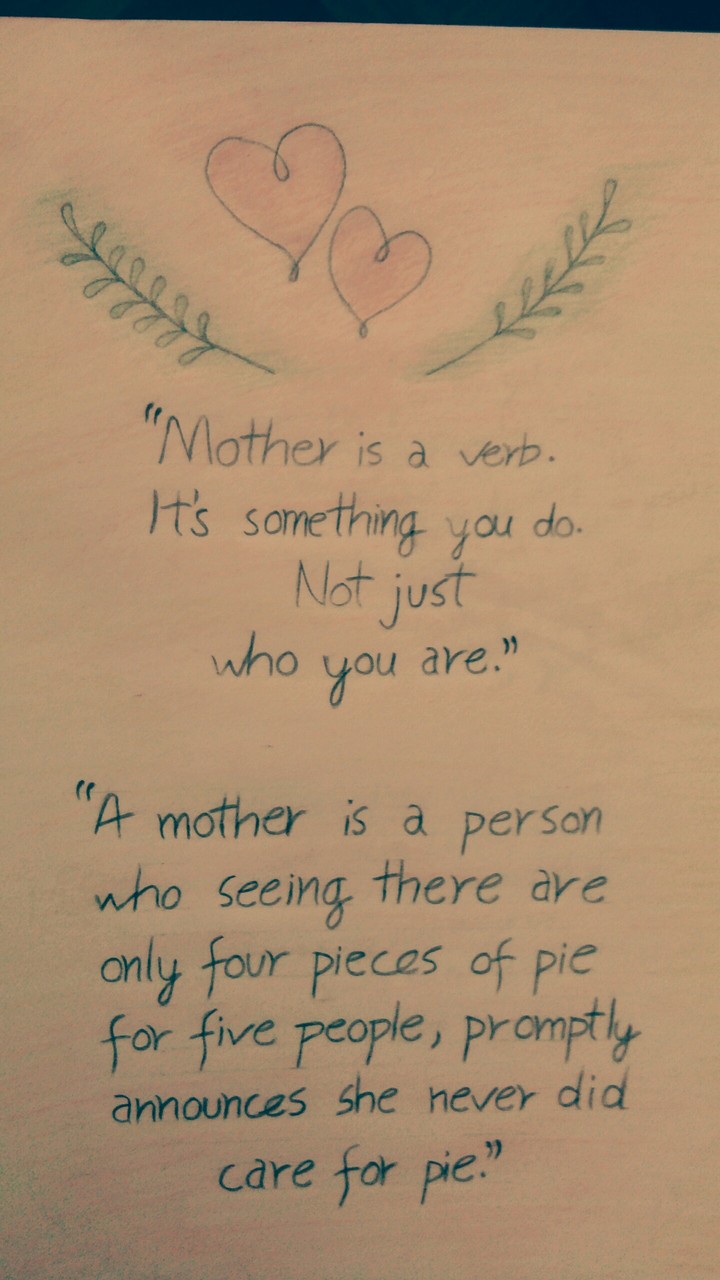 "Mother is a verb.
It's something you do.
Not just
who you are."
"A mother is a person
who seeing there are
only four pieces of pie
for five people, promptly
announces she never did
care for pie."